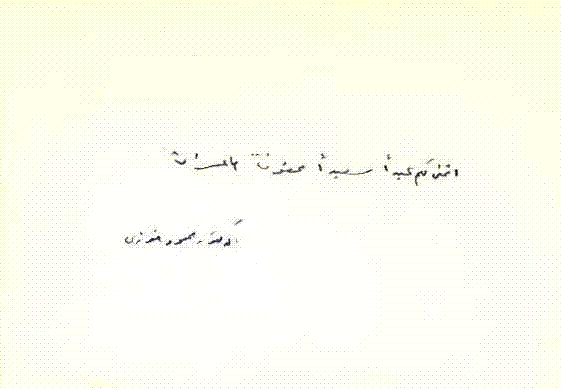 اتمنى لكم عيداً سعيداً محفوفاً بالمسرات
دكتور محمود فوزى